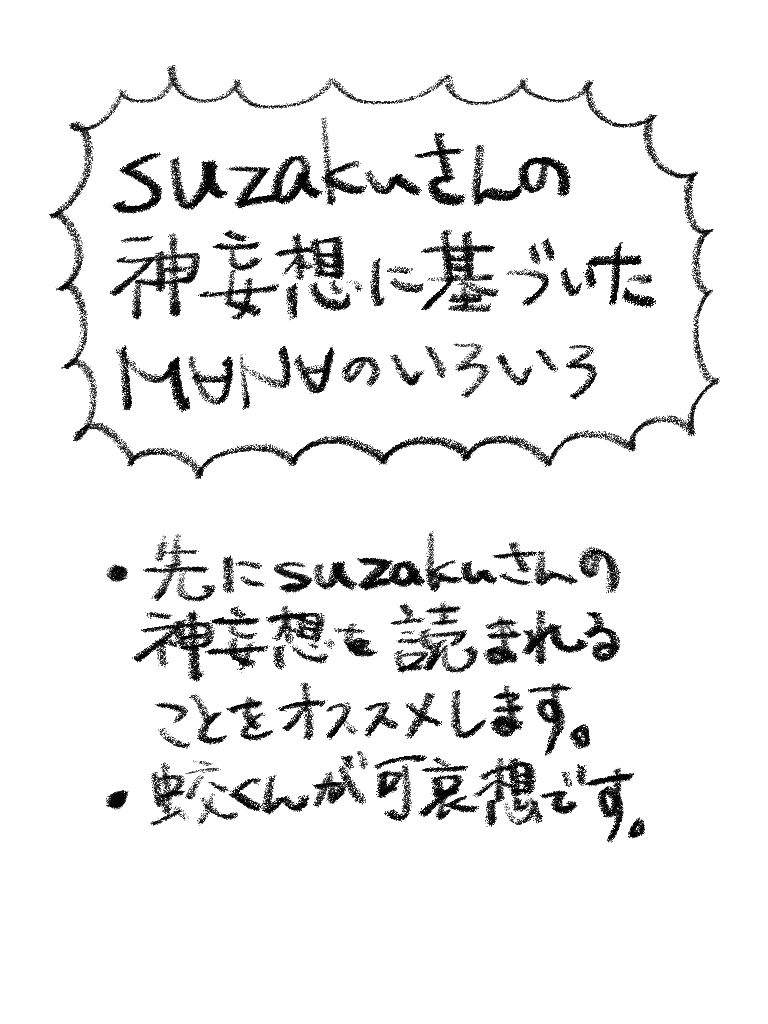 suzakuさんの
神妄想に基づいた
M∀N∀のいろいろ
・先にsuzakuさんの
神妄想を読まれる
ことをオススメします。
・蛟くんが可哀想です。